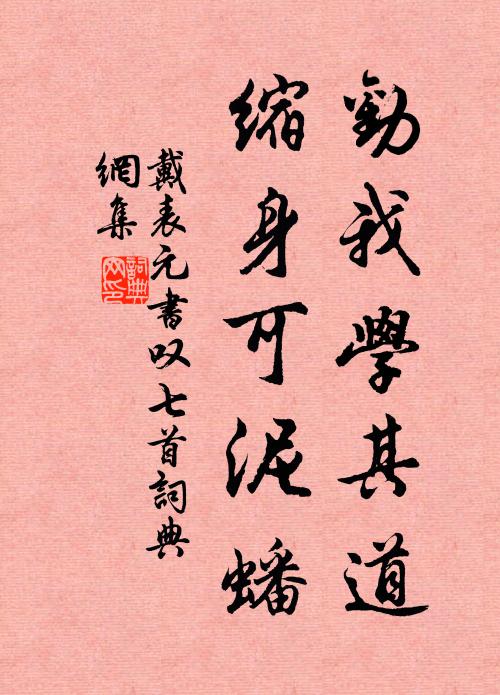 勸我學其道
縮身可泥蟠
戴表元書叹七首詞典
網集
詞典網印